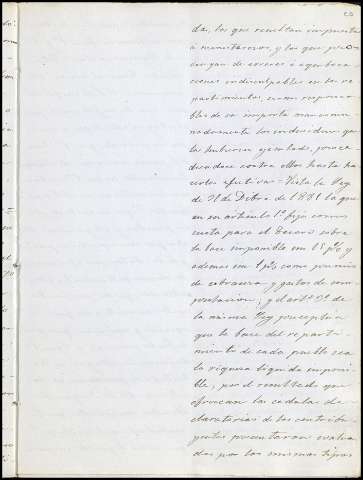 das, los que resultan impuestos
á menestrosos, y los que
dengan de errores ó equivoca-
ciones indisculpables en los re-
partimientos, eran responsa-
bles de su importe mancomu-
nadamente los individuos que
los hubieran ejecutado, proce-
diendose contra ellos hasta ha-
cerlos efectivos = Vista la Ley
de 31 de Dibre. de 1881 la que
en su artículo 1º fija como
cuota para el Tesoro sobre
la base imponible en 15 p%, y
ademas un 1 p% como premio
de cobranza y gastos de com-
probacion; y el artº 3º de
la misma Ley preceptúa
que la base del reparti-
miento de cada pueblo sea
la riqueza líquida imponi-
ble, por el resultado que
ofrezcan las cedulas de-
claratorias de los contribu-
yentes presentaran evalua-
das por los mismos tipos